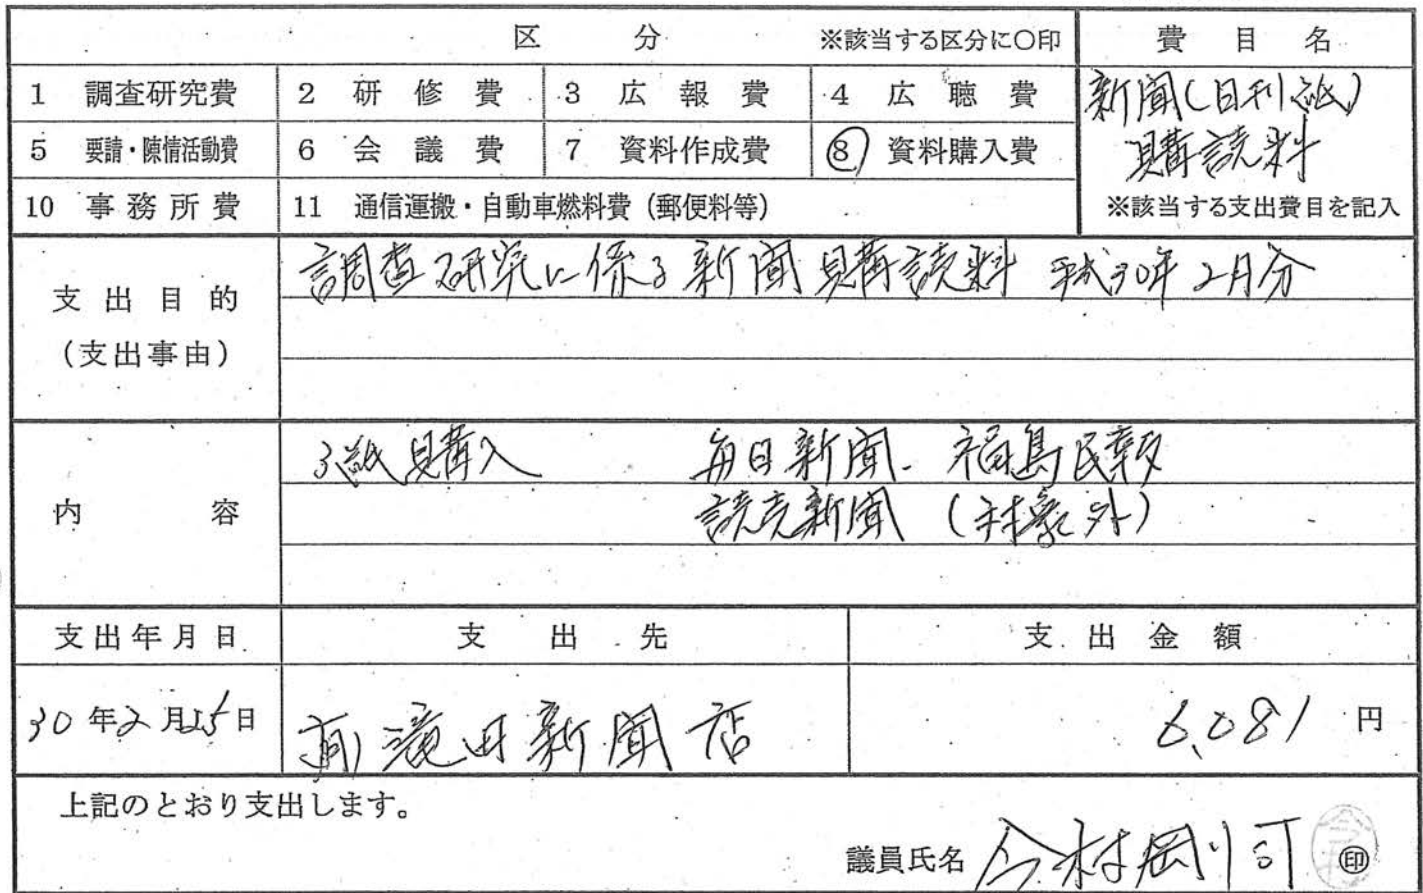 区 分 ※該当する区分に○印 費 目 名
1 調査研究費 2 研 修 費 3 広 報 費 4 広 聴 費
新聞(日刊紙)
5 要請・陳情活動費 6 会 議 費 7 資料作成費 ⑧ 資料購入費
購読料
10 事 務 所 費 11 通信運搬・自動車燃料費(郵便料等) ※該当する支出費目を記入
支 出 目 的
(支出事由)
調査研究に係る新聞購読料 平成30年2月分
内 容
3紙購入 毎日新聞、福島民報
読売新聞 (対象外)
支出年月日 支 出 先 支 出 金 額
30年2月25日 (有)滝田新聞店 6,081 円
上記のとおり支出します。
議員氏名 今村剛司 ㊞